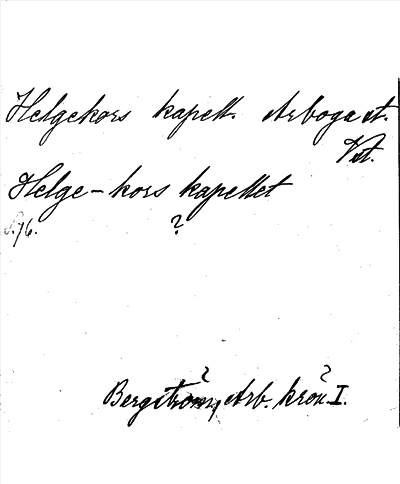 Helgekors kapell. Arboga st.
Vst.
Helge-kors kapellet
S. 76.
?
Bergström, Arb. krön. I.